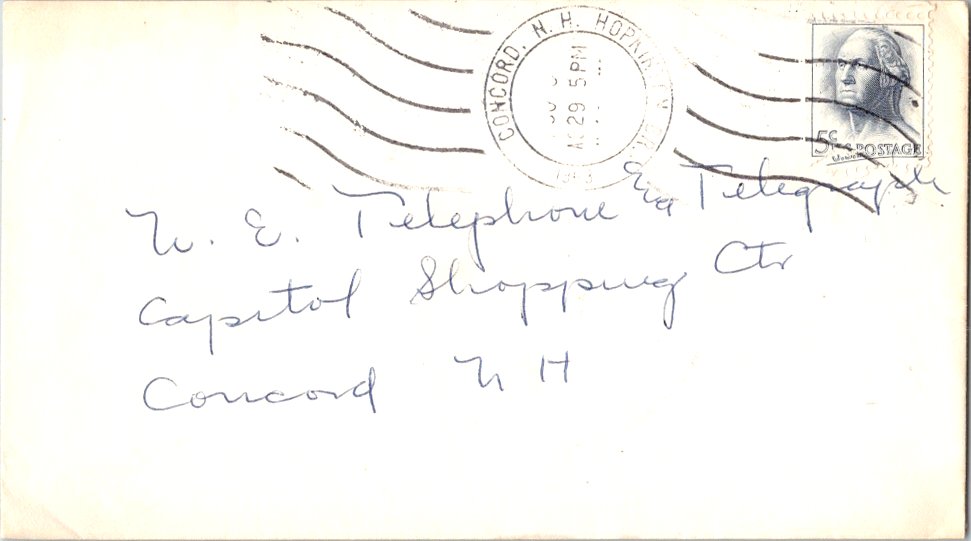 CONCORD, N.H. HOPKINTON BR.
AUG 29 5 PM
1963
5¢ U.S. POSTAGE
N. E. Telephone & Telegraph
Capitol Shopping Ctr
Concord N H